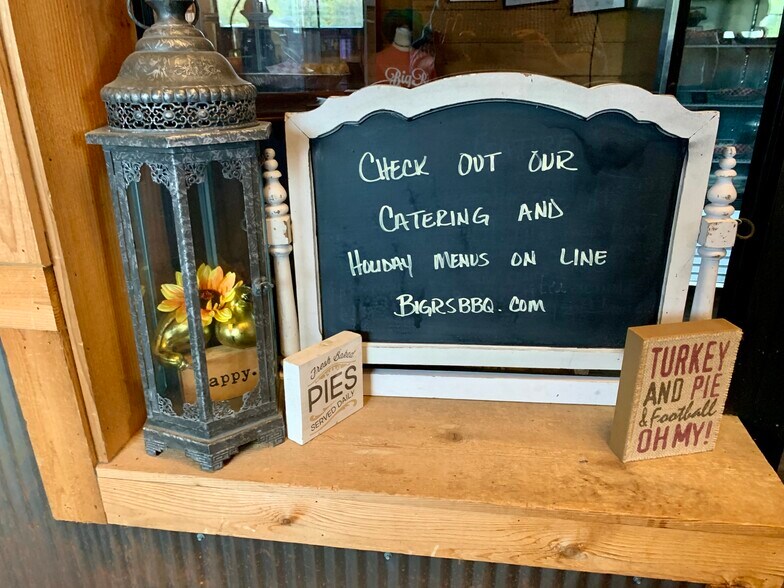 Big R
CHECK OUT OUR
CATERING AND
HOLIDAY MENUS ON LINE
BIGRSBBQ.COM
appy.
Fresh Baked
PIES
SERVED DAILY
TURKEY
AND PIE
& Football
OH MY!